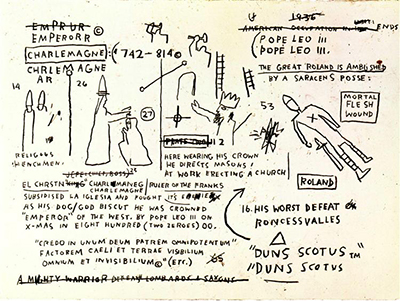 EMPRUR
EMPERORR ©
CHARLEMAGNE: (742-814©
CHRLEMAGNE
AR
14
26
27
RELIGOUS
HENCHMEN:
HERE WEARING HIS CROWN
HE DIRECTS MASONS!
AT WORK ERECTING A CHURCH
RULER OF THE FRANKS
CHARLEMAGNE
SUBSIPISED LA IGLESIA AND FOUGHT ITS ENEMIES
AS HIS DOG/GOD BISCUT HE WAS CROWNED
"EMPEROR" OF THE WEST. BY POPE LEO III ON
X-MAS IN EIGHT HUNDRED (TWO ZEROES) 00.
"CREDO IN UNUM DEUM PATREM OMNIPOTENTUM"
FACTOREM CAELI ET TERRAE VISBILIUM
OMNIUM ET INVISIBILIUM©" (ETC.)
A MIGHTY WARRIOR DEFEAT LOMBARDS & SAXONS
1936
AMERICAN OCCUPATION IN HAITI ENDS
POPE LEO III
POPE LEO III.
THE GREAT ROLAND IS AMBUSHED
BY A SARACENS POSSE:
53
MORTAL
FLESH
WOUND
ROLAND
16. HIS WORST DEFEAT
RONCESSVALLES
"DUNS SCOTUS™
"DUNS SCOTUS